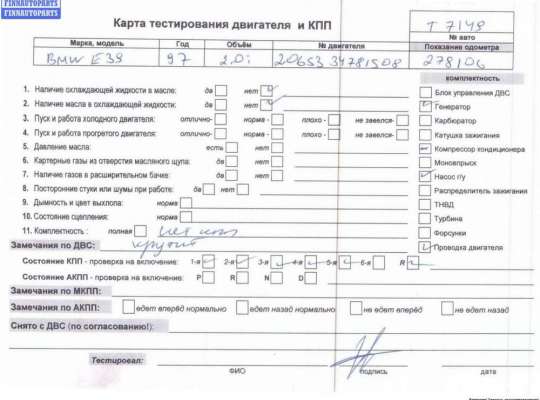 FINNAUTOPARTS
Карта тестирования двигателя и КПП
T 7148
№ авто
Марка, модель Год Объём № двигателя Показание одометра
BMW E39 97 2.0i 20653 34781508 278106
комплектность
1. Наличие охлаждающей жидкости в масле: да нет
2. Наличие масла в охлаждающей жидкости: да нет
3. Пуск и работа холодного двигателя: отлично- норма - плохо - не завелся-
4. Пуск и работа прогретого двигателя: отлично- норма - плохо - не завелся-
5. Давление масла: есть нет
6. Картерные газы из отверстия масляного щупа: да нет
7. Наличие газов в расширительном бачке: да нет
8. Посторонние стуки или шумы при работе: да нет
9. Дымность и цвет выхлопа: норма
10. Состояние сцепления: норма
11. Комплектность : полная
Блок управления ДВС
Генератор
Карбюратор
Катушка зажигания
Компрессор кондиционера
Моновпрыск
Насос г/у
Распределитель зажигания
ТНВД
Турбина
Форсунки
Проводка двигателя
Замечания по ДВС: крутит
Состояние КПП - проверка на включение: 1-я 2-я 3-я 4-я 5-я 6-я R
Состояние АКПП - проверка на включение: P R N D
Замечания по МКПП:
Замечания по АКПП: едет вперёд нормально едет назад нормально не едет вперёд не едет назад
Снято с ДВС (по согласованию!):
Тестировал:
ФИО подпись дата